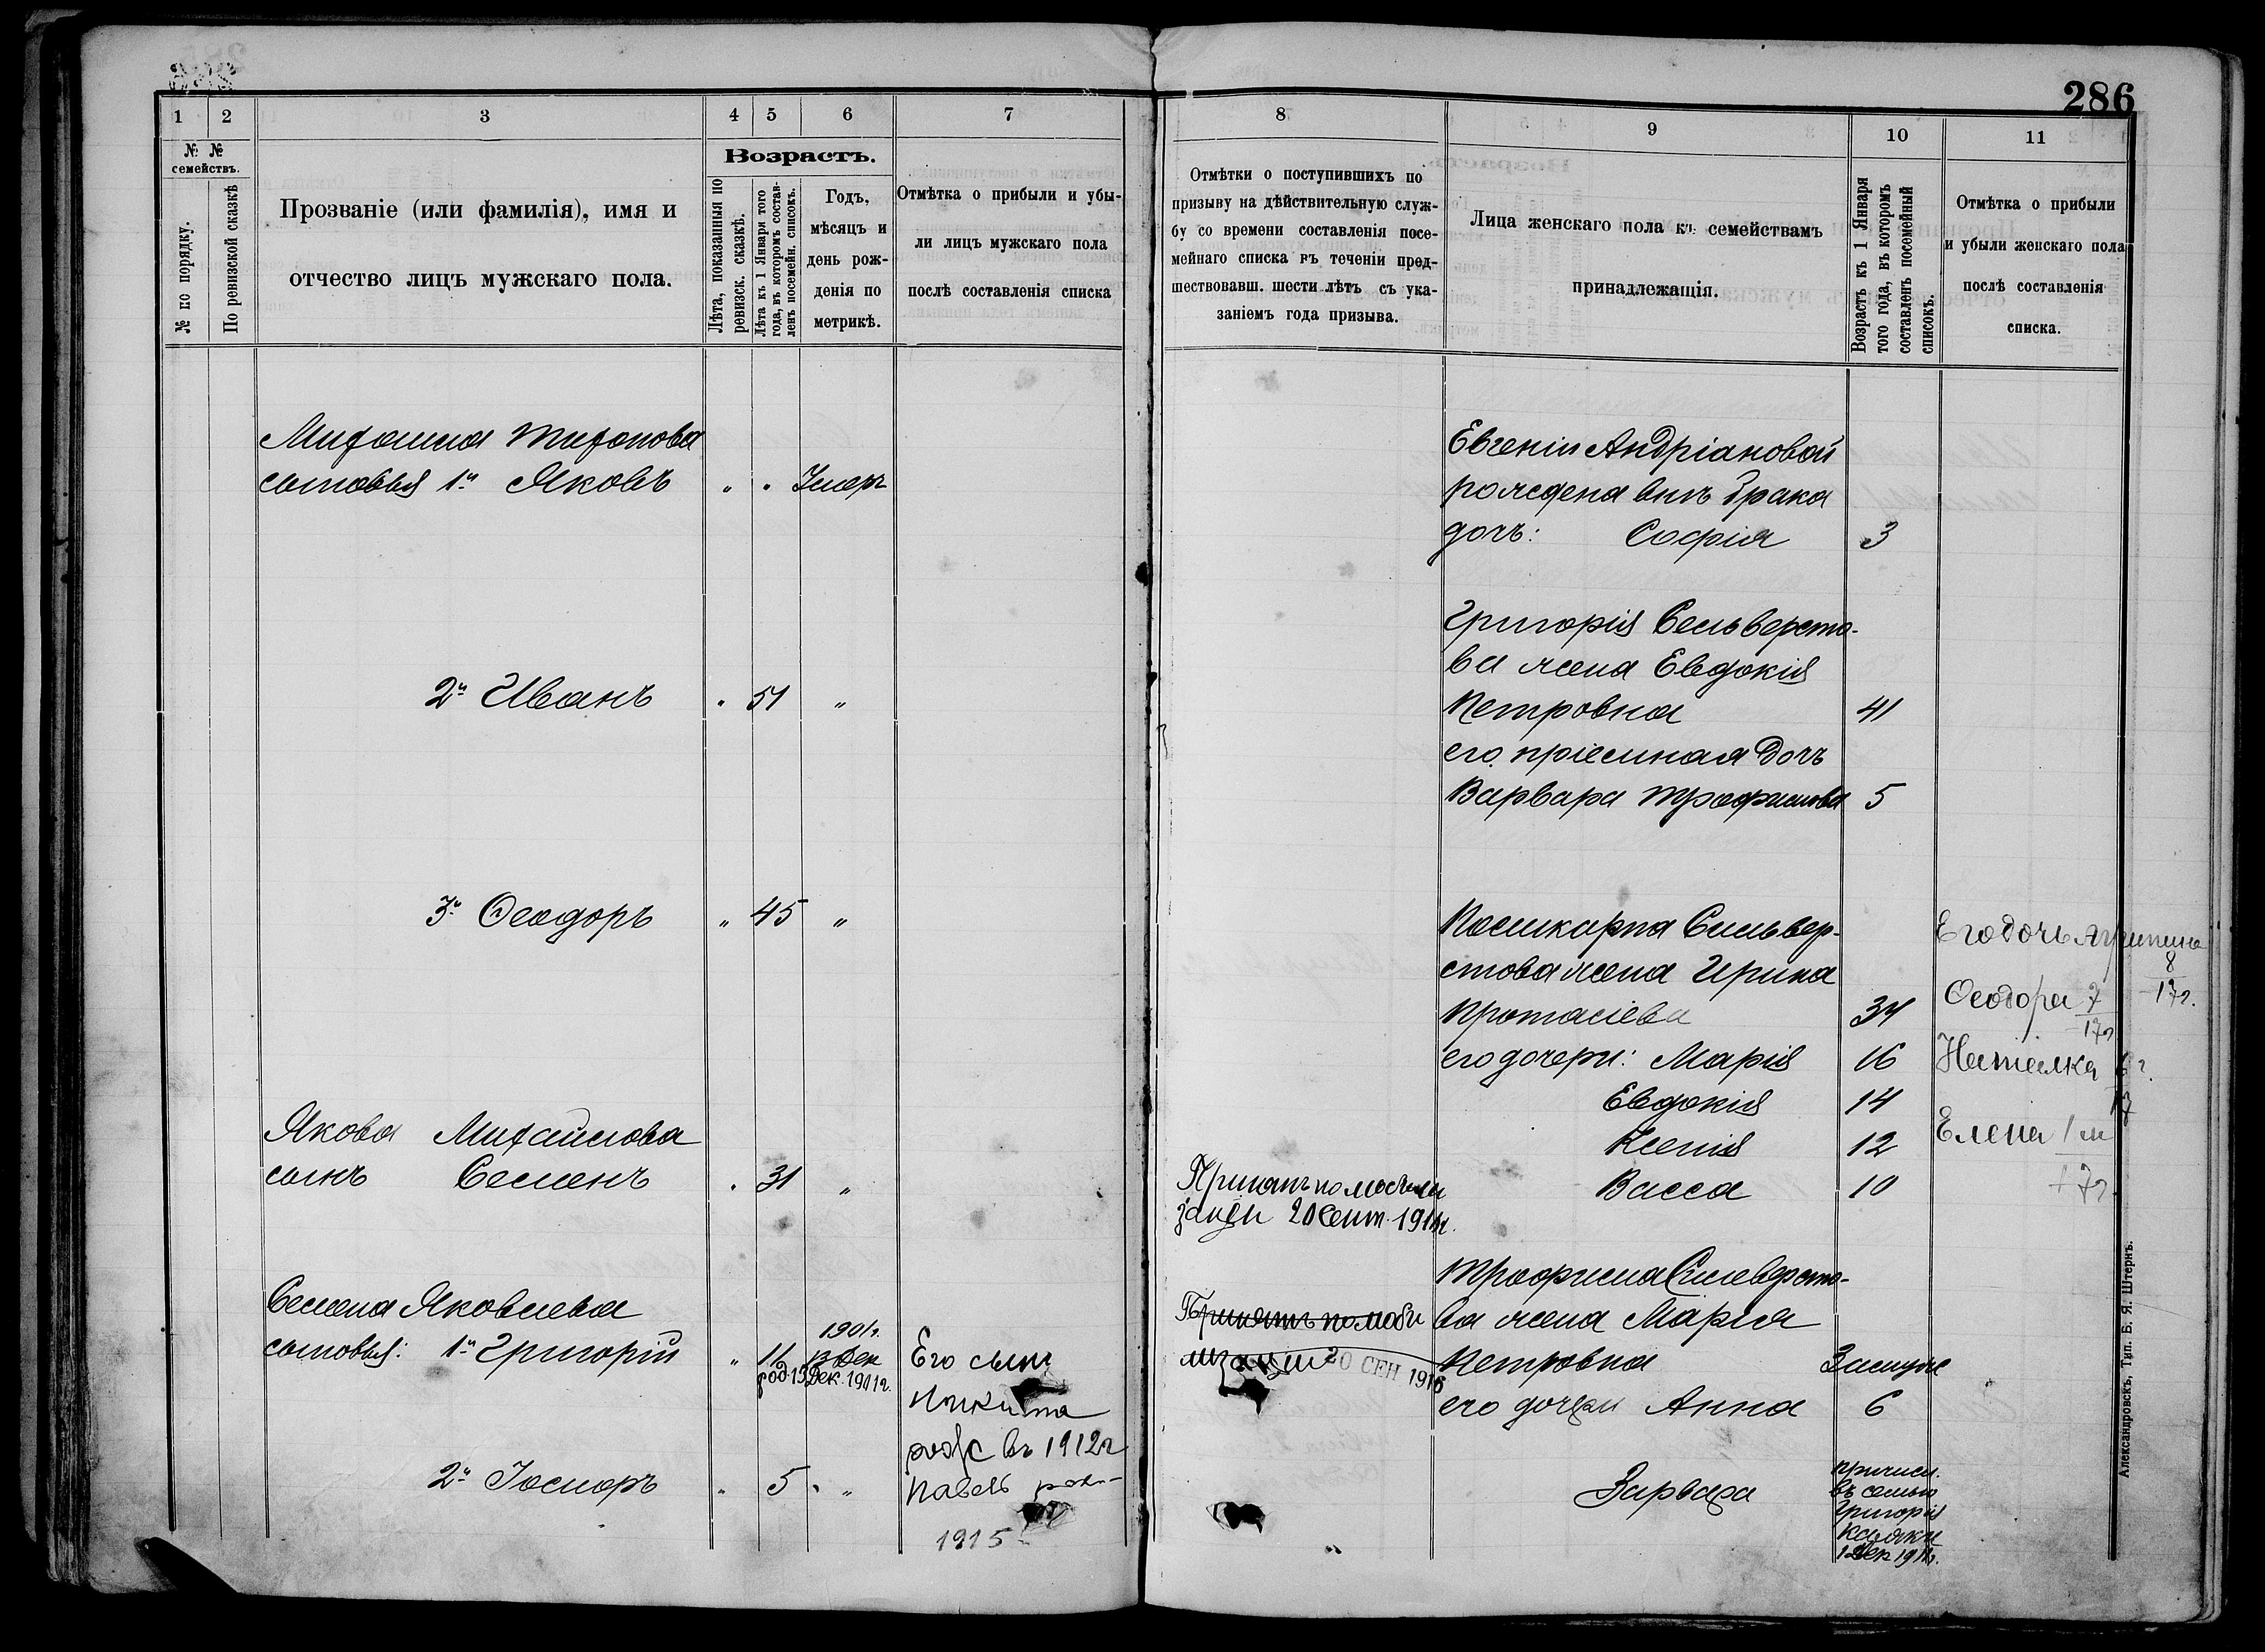 286
1 2 3 4 5 6 7
№ № семействъ.
№ по порядку.
По ревизской сказкѣ
Прозваніе (или фамилія), имя и
отчество лицъ мужскаго пола.
Возрастъ.
Лѣта, показанныя по
ревизск. сказкѣ.
Лѣта къ 1 Января того
года, въ которомъ состав-
ленъ посемейн. списокъ.
Годъ,
мѣсяцъ и
день рож-
денія по
метрикѣ.
Отмѣтка о прибыли и убы-
ли лицъ мужскаго пола
послѣ составленія списка
Яковъ " "
2й Иванъ " 51 "
3й Ѳеодоръ " 45 "
Якова Михайлова
сынъ Семенъ " 31 "
Семена Яковлева
1901г.
сыновья: 1й Григорій " 11
Дек. 1911г.
Его сынъ
Никита
въ 1912г
2й " 5 " "
Павелъ
1915
8 9 10 11
Отмѣтки о поступившихъ по
призыву на дѣйствительную служ-
бу со времени составленія посе-
мейнаго списка въ теченіи пред-
шествовавш. шести лѣтъ съ ука-
заніемъ года призыва.
Лица женскаго пола къ семействамъ
принадлежащія.
Возрастъ къ 1 Января
того года, въ которомъ
составленъ посемейный
списокъ.
Отмѣтка о прибыли
и убыли женскаго пола
послѣ составленія
списка.
Евгеніи Андріановой
рождена внѣ брака
дочь: Софія 3
Григорія Сельверсто-
ва жена Евдокія
Петровна 41
его пріемная дочь
Варвара Трофимова 5
Поликарпа Сильвер-
стова жена Ирина
Протасіева 34
его дочери: Марія 16
Евдокія 14
Ксенія 12
Васса 10
Его дочь
8
17г.
Ѳеодора 7
17г
Наталка
Елена 1 м
17г.
20 Сент.
Трофима Сильверсто-
Принятъ по моби
ва жена Марія
лизаціи 20 СЕН 1916
Петровна Замуже
его дочери Анна 6
Варвара
причисл.
въ семью
Григорія
Дек 1911г.
"
Александровскъ, Тип. Б. Я. Штернъ.